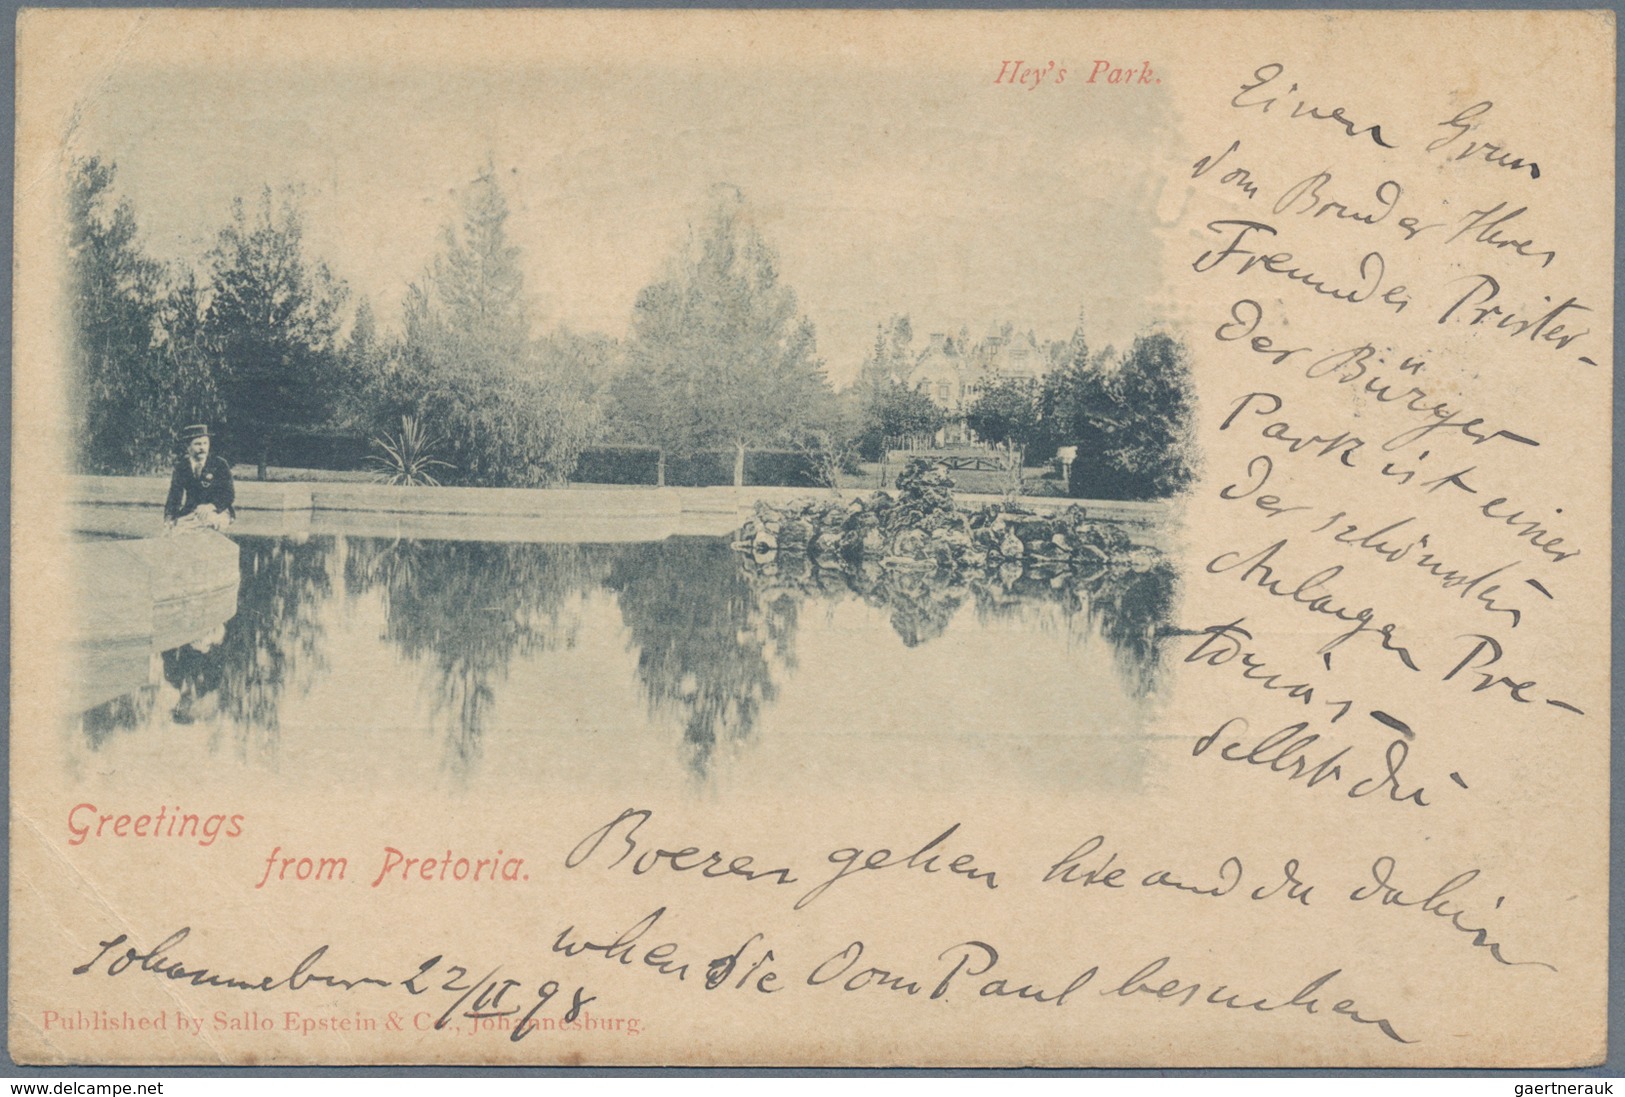 Hey's Park.
Einen Gruss
vom Bruder Ihres
Freundes Prister-
der Bürger
Park ist einer
der schönsten
Anlagen Pre-
torias-
Selbst die
Boeren gehen hie and da dahin
when Sie Oom Paul besuchen
Greetings
from Pretoria.
Johannesburg 22/II 98
Published by Sallo Epstein & Co., Johannesburg.
www.delcampe.net
gaertnerauk